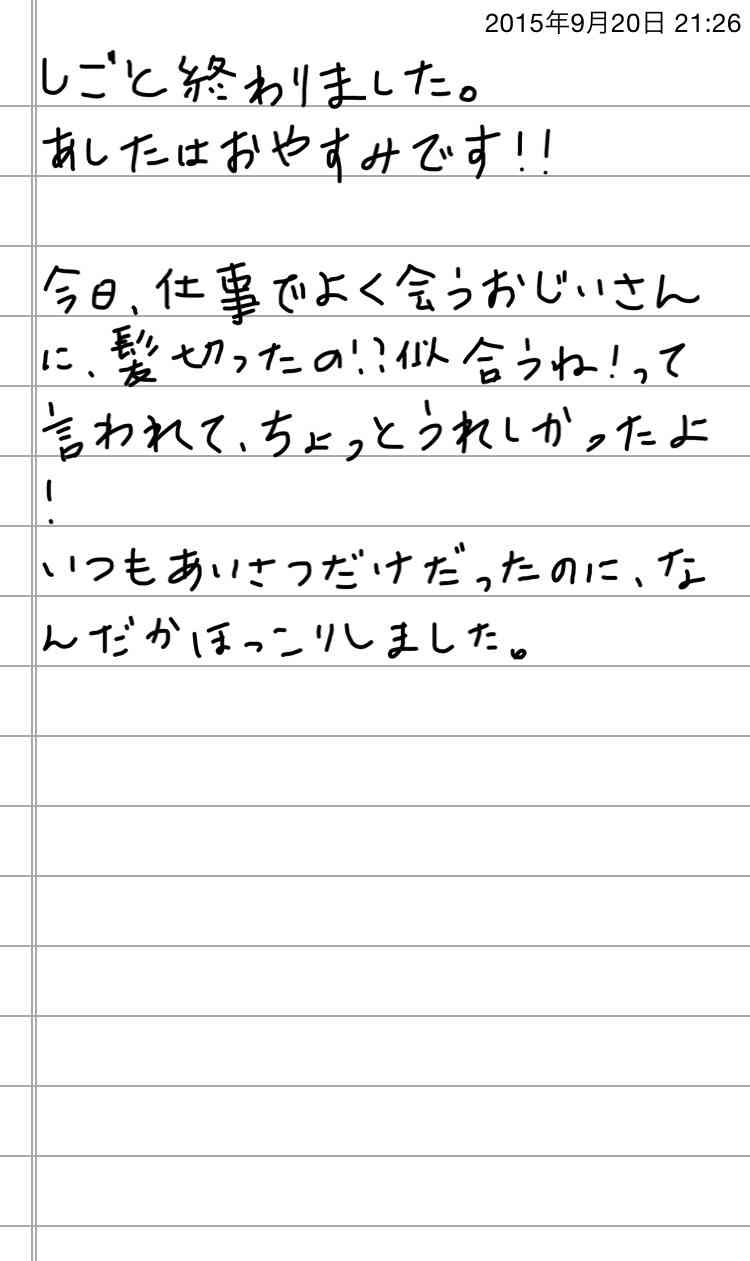 2015年9月20日 21:26
しごと終わりました。
あしたはおやすみです!!
今日、仕事でよく会うおじいさん
に、髪切ったの!?似合うね!って
言われて、ちょっとうれしかったよ
!
いつもあいさつだけだったのに、な
んだかほっこりしました。